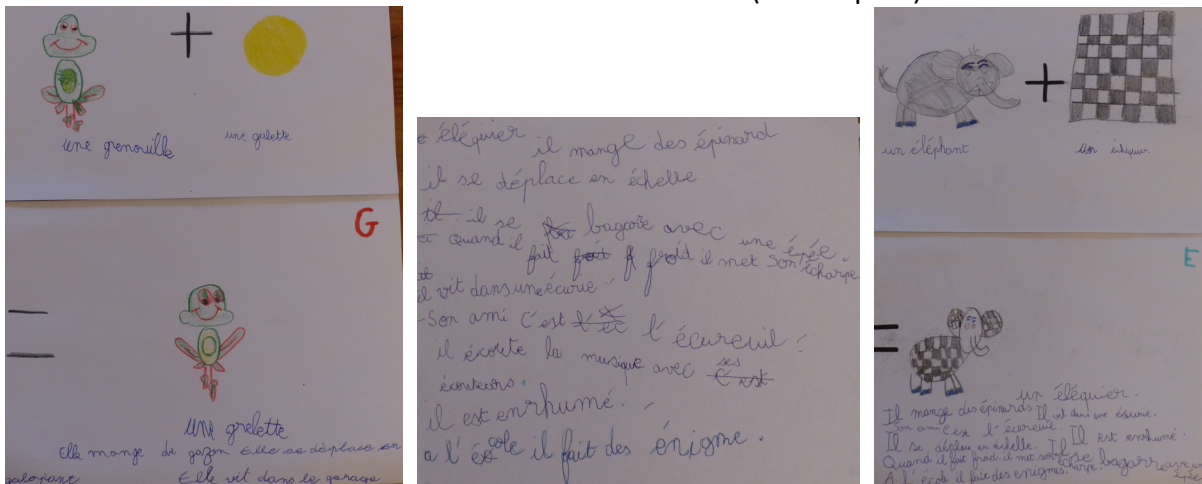 une grenouille
+
une galette
G
=
une grelette
Elle mange du gazon Elle se déplace en
galopant
Elle vit dans le garage
éléquier il mange des épinard
il se déplace en échelle
il se bagare avec une épée.
Quand il fait froid il met son écharpe
il vit dans une écurie
-Son ami C'est l'écureuil.
il écoute la musique avec ses
écouteurs.
il est enrhumé.
a l'école il fait des énigme.
un éléphant
+
un échiquier
E
=
un éléquier.
Il mange des épinards. Il vit dans une écurie.
Son ami c'est l'écureuil.
Il se déplace en échelle. Il est enrhumé.
Quand il fait froid il met son écharpe. Il se bagarre
A l'école il fait des enigmes.